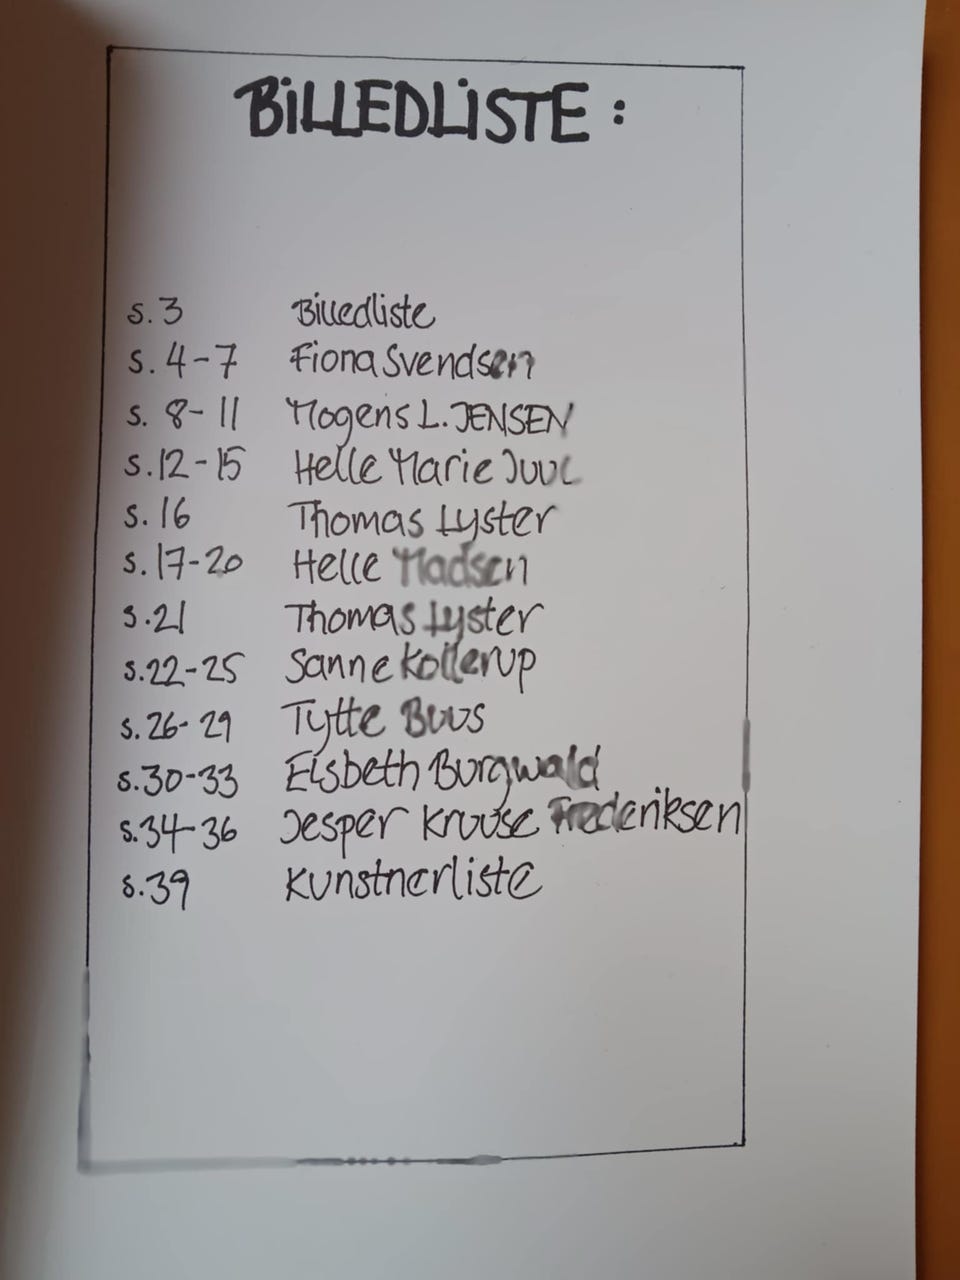 BILLEDLISTE :
s. 3 Billedliste
s. 4-7 Fiona Svendsen
s. 8-11 Mogens L. JENSEN
s. 12-15 Helle Marie Juul
s. 16 Thomas Lyster
s. 17-20 Helle Madsen
s. 21 Thomas Lyster
s. 22-25 Sanne Kollerup
s. 26-29 Tytte Buus
s. 30-33 Elsbeth Burgwald
s. 34-36 Jesper Kruuse Frederiksen
s. 39 Kunstnerliste